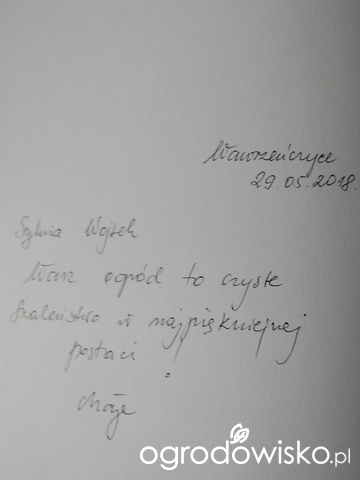 Wawrzeńczyce
29.05.2018.
Sylwia Wojtek
Wasz ogród to czyste
szaleństwo w najpiękniejnej
postaci
ogrodowisko.pl